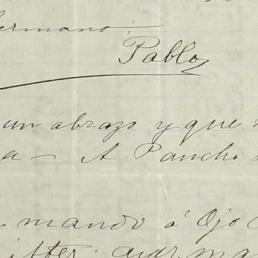 hermano
Pablo
un abrazo y que
a — A Pancho
mando á Ojo